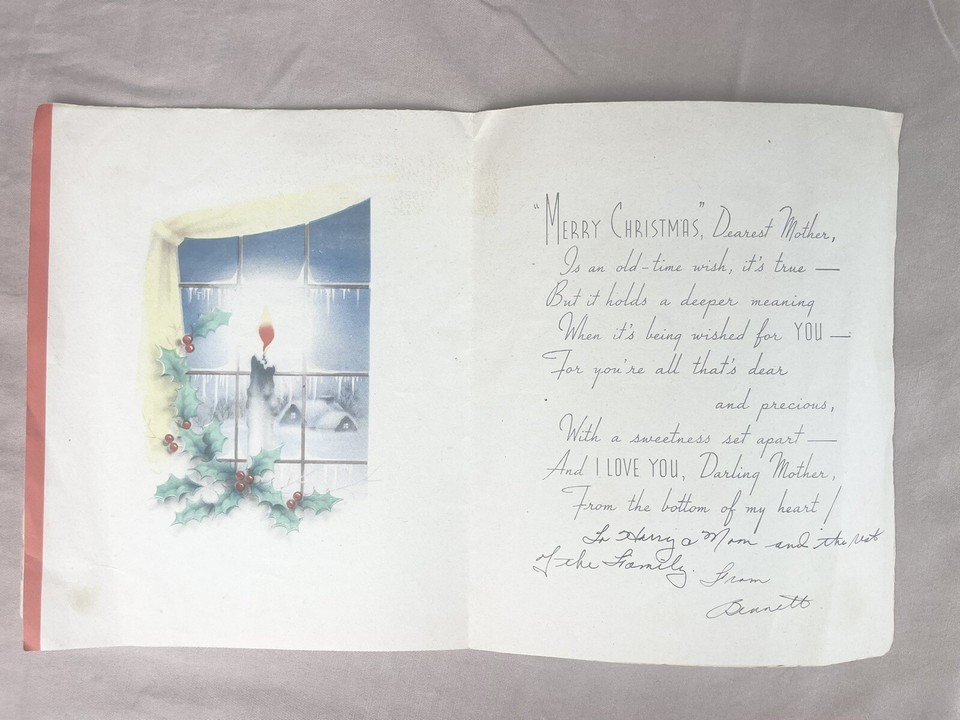 "MERRY CHRISTMAS", Dearest Mother,
Is an old-time wish, it's true —
But it holds a deeper meaning
When it's being wished for YOU —
For you're all that's dear
and precious,
With a sweetness set apart —
And I LOVE YOU, Darling Mother,
From the bottom of my heart!
To Harry a Mom and the rest
of the Family. From
Bennett